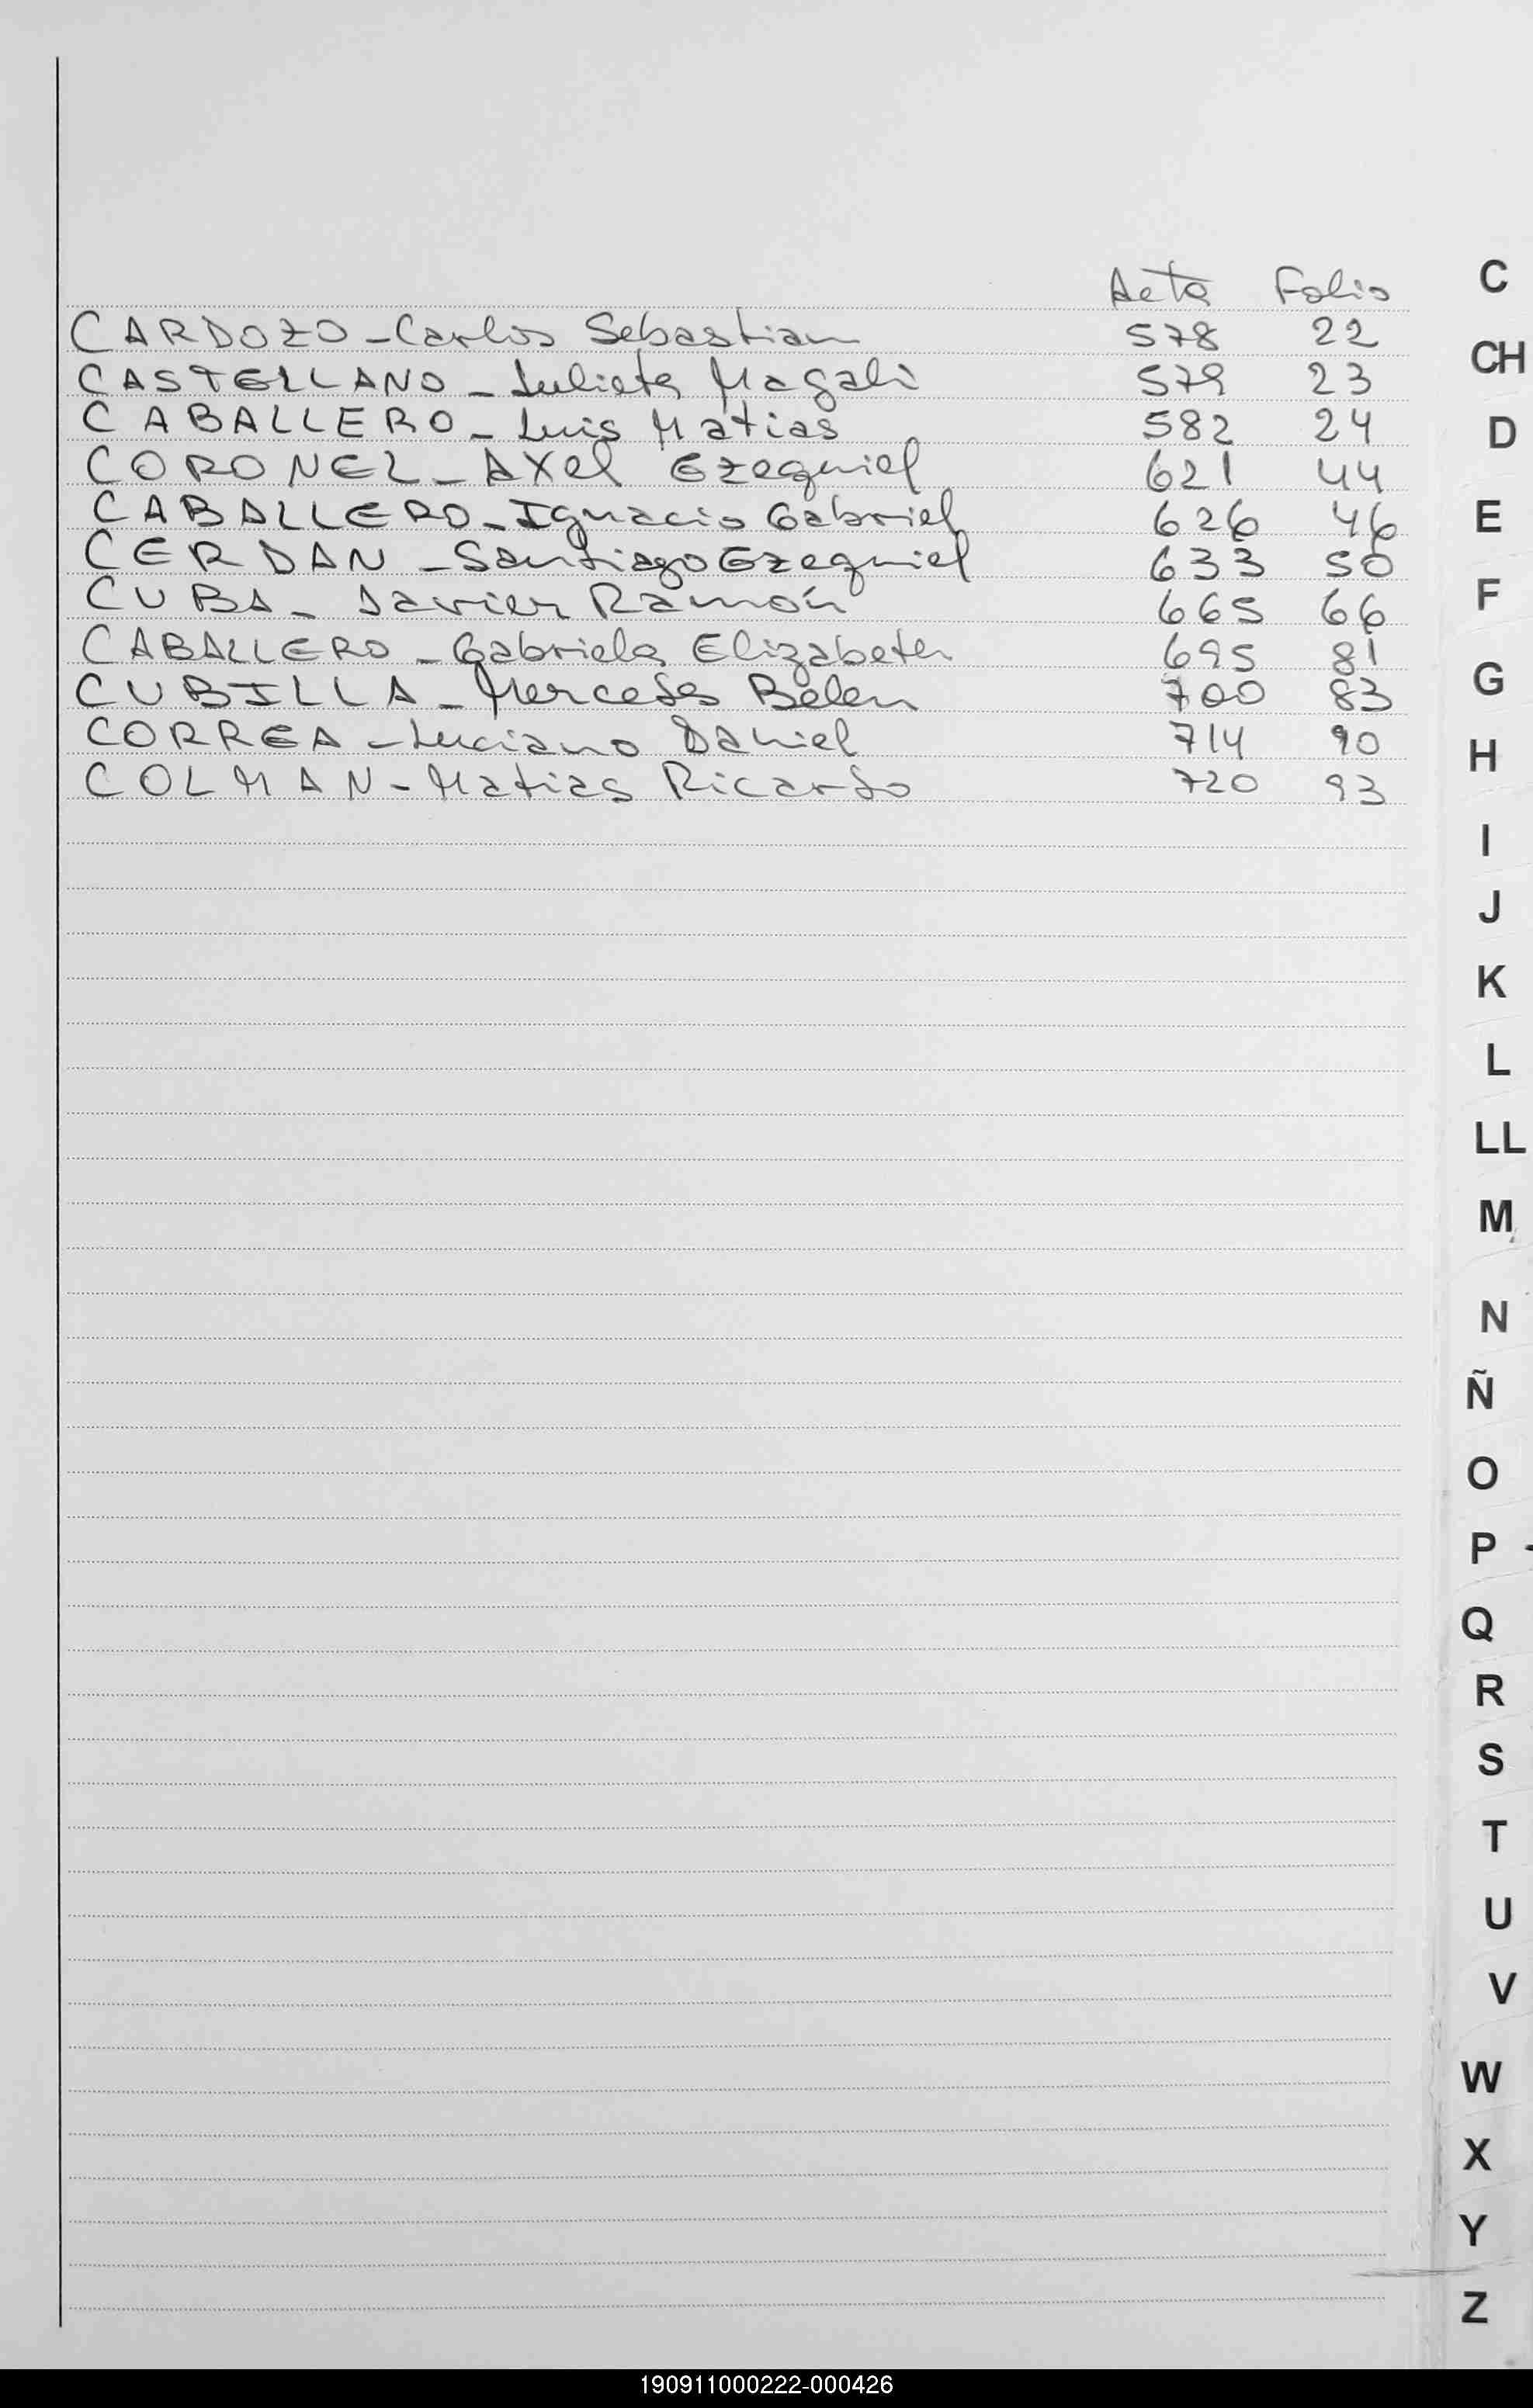 Acta Folio
CARDOZO - Carlos Sebastian 578 22
CASTELLANO - Julieta Magali 579 23
CABALLERO - Luis Matias 582 24
CORONEL - Axel Ezequiel 621 44
CABALLERO - Ignacio Gabriel 626 46
CERDAN - Santiago Ezequiel 633 50
CUBA - Javier Ramón 665 66
CABALLERO - Gabriela Elizabeth 695 81
CUBILLA - Mercedes Belen 700 83
CORREA - Luciano Daniel 714 90
COLMAN - Matias Ricardo 720 93
C
CH
D
E
F
G
H
I
J
K
L
LL
M
N
Ñ
O
P
Q
R
S
T
U
V
W
X
Y
Z
190911000222-000426